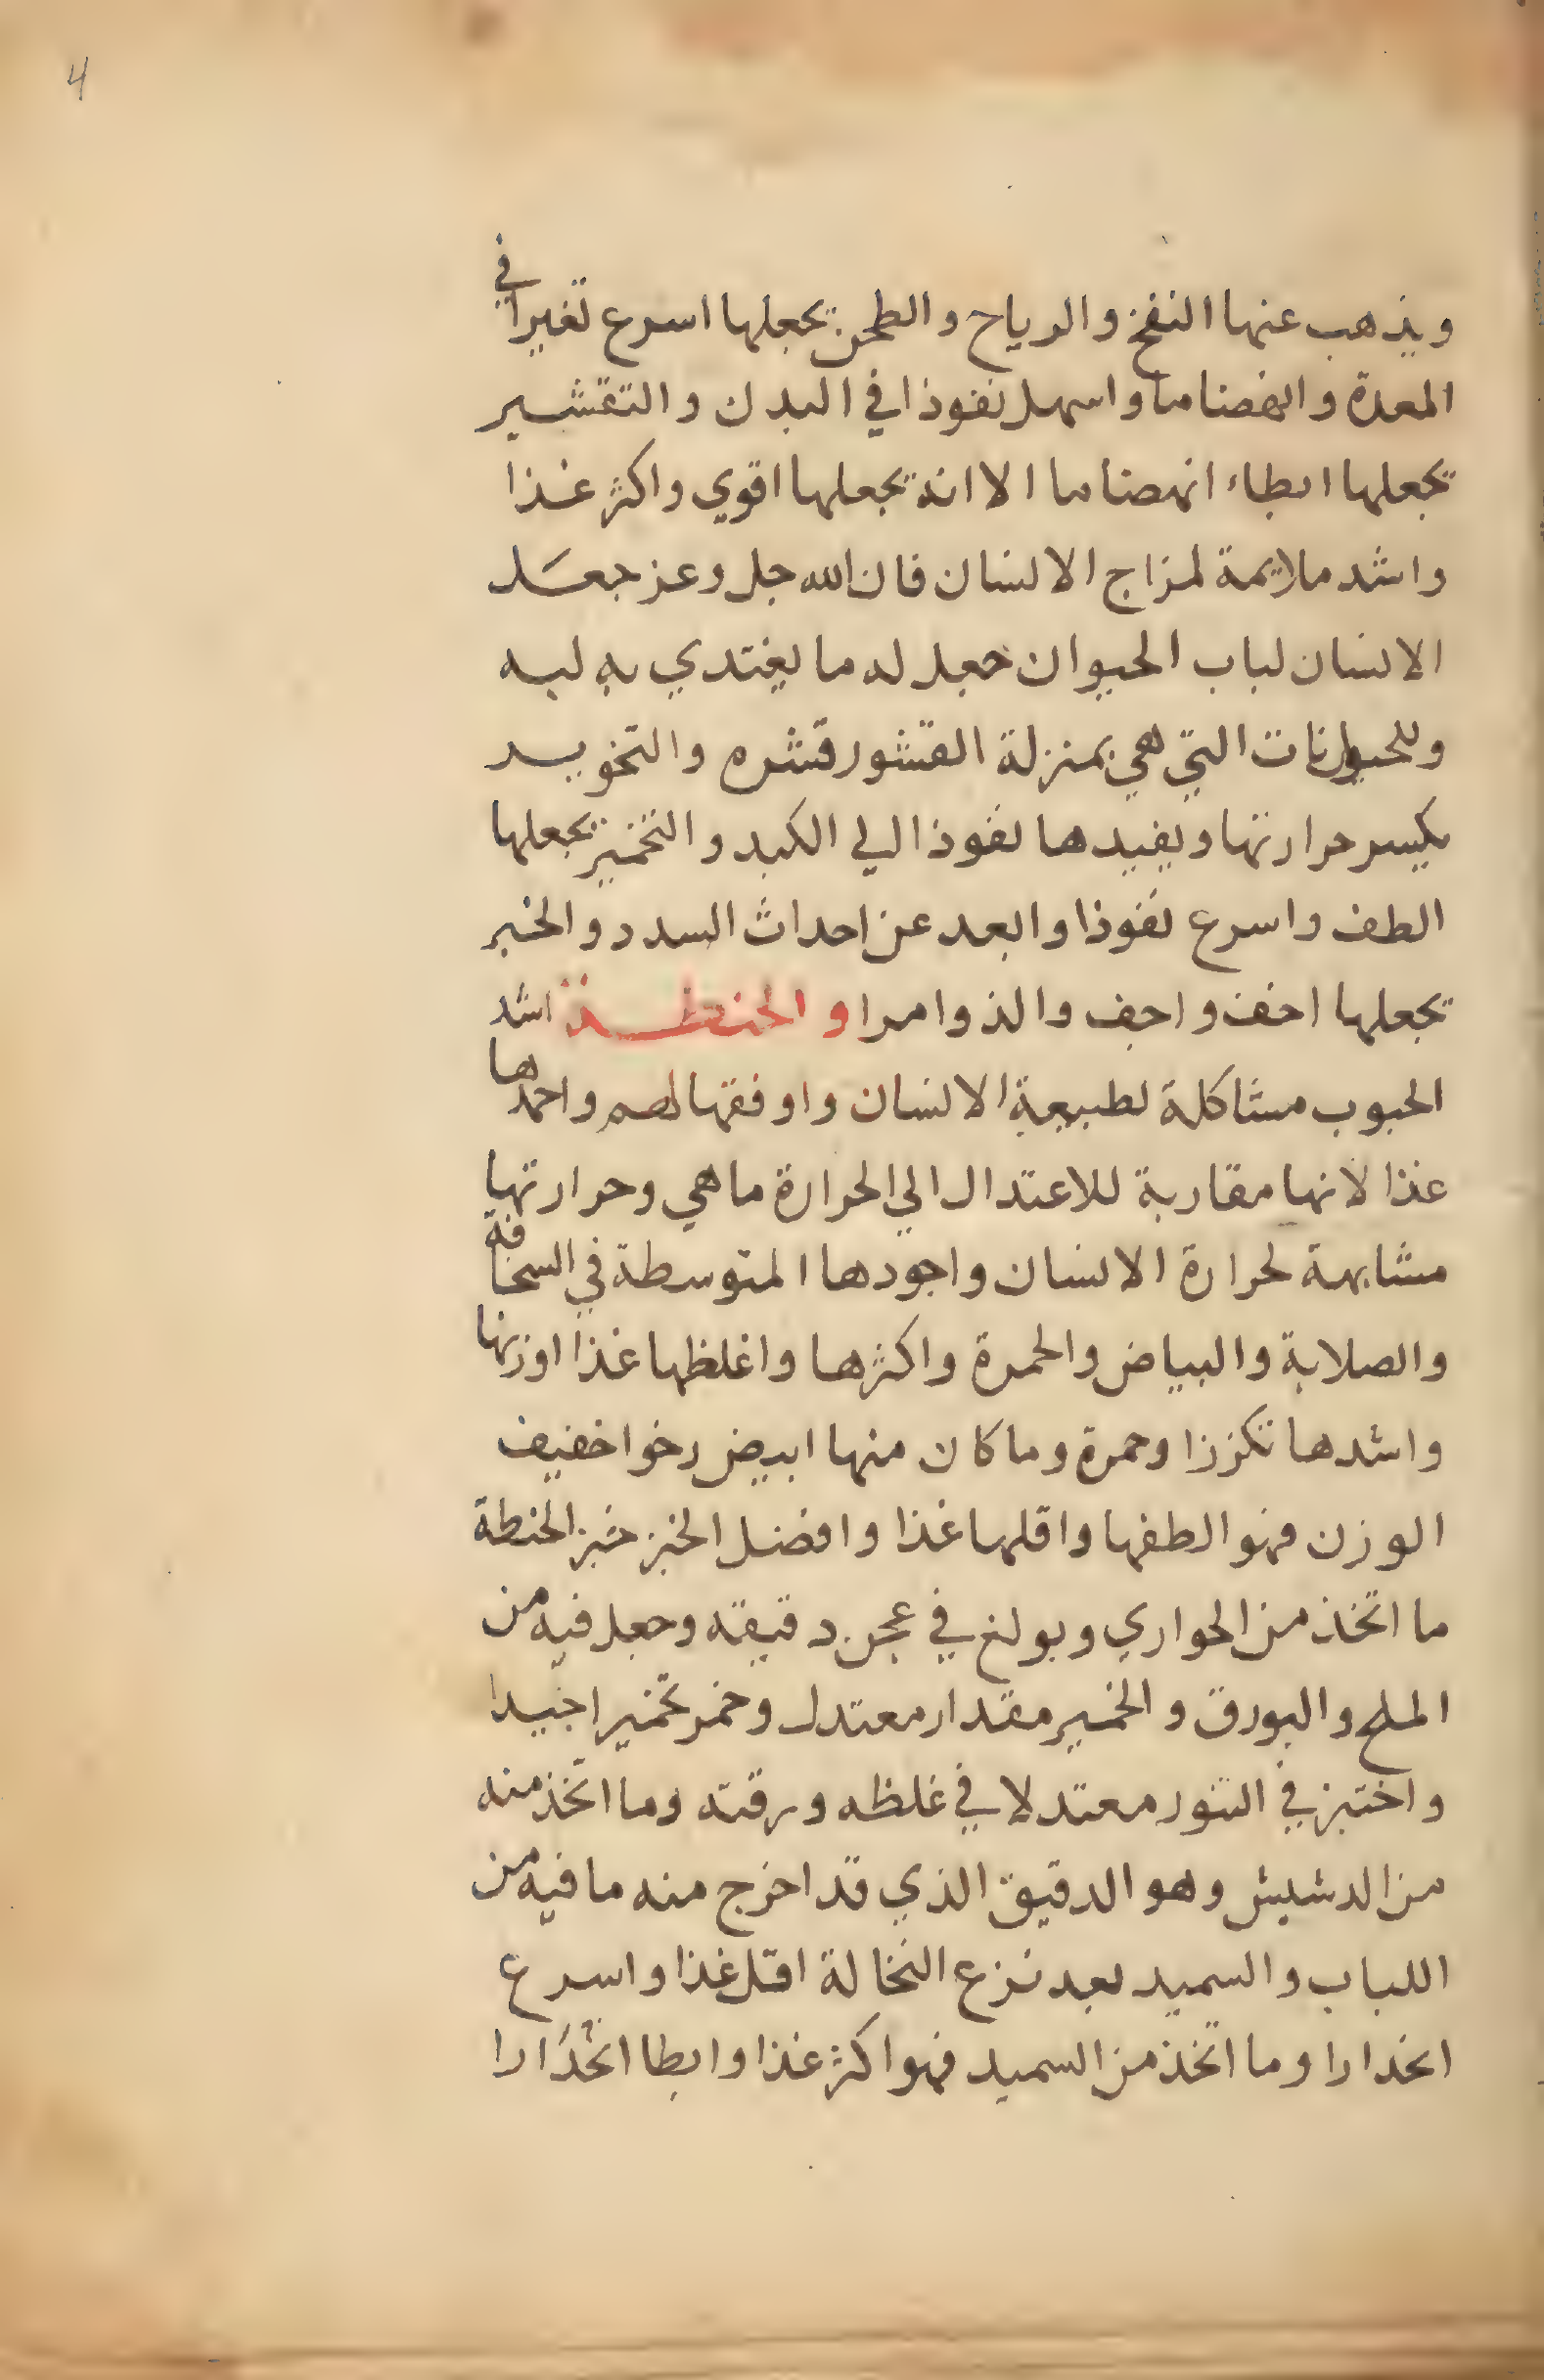 4
ويذهب عنها النفخ والرياح والطحن يجعلها اسرع تغيرا في
المعدة وانهضاما واسهل نفوذا في البدن والتقشير
يجعلها ابطاء انهضاما الا انه يجعلها اقوي واكثر غذا
واشد ملايمة لمزاج الانسان فان الله جل وعز جعل
الانسان لباب الحيوان جعل له ما يغتدي به لبه
وللحيوانات التي هي بمنزلة القشور قشره والتخويد
يكسر حرارتها ويفيدها نفوذا الي الكبد والتخمير يجعلها
الطف واسرع نفوذا وابعد عن احداث السدد والخبر
يجعلها اخف واجف والذ وامرا والحنطة اشد
الحبوب مشاكلة لطبيعة الانسان واوفقها لهم واحمدها
غذا لانها مقاربة للاعتدال الي الحرارة ما هي وحرارتها
مشابهة لحرارة الانسان واجودها المتوسطة في السخافة
والصلابة والبياض والحمرة واكثرها واغلظها غذا اوزنها
واشدها تكززا وحمرة وما كان منها ابيض رخوا خفيف
الوزن فهو الطفها واقلها غذا وافضل الخبز خبز الحنطة
ما اتخذ من الحواري وبولغ في عجن دقيقه وجعل فيه من
الملح والبورق والخمير مقدار معتدل وخمر تخميرا جيدا
واختبز في التنور معتدلا في غلظه ورقته وما اتخذ منه
من الدشيش وهو الدقيق الذي قد اخرج منه ما فيه من
اللباب والسميد بعد نزع النخالة اقل غذا واسرع
انحدارا وما اتخذ من السميد فهو اكثر غذا وابطا انحدارا